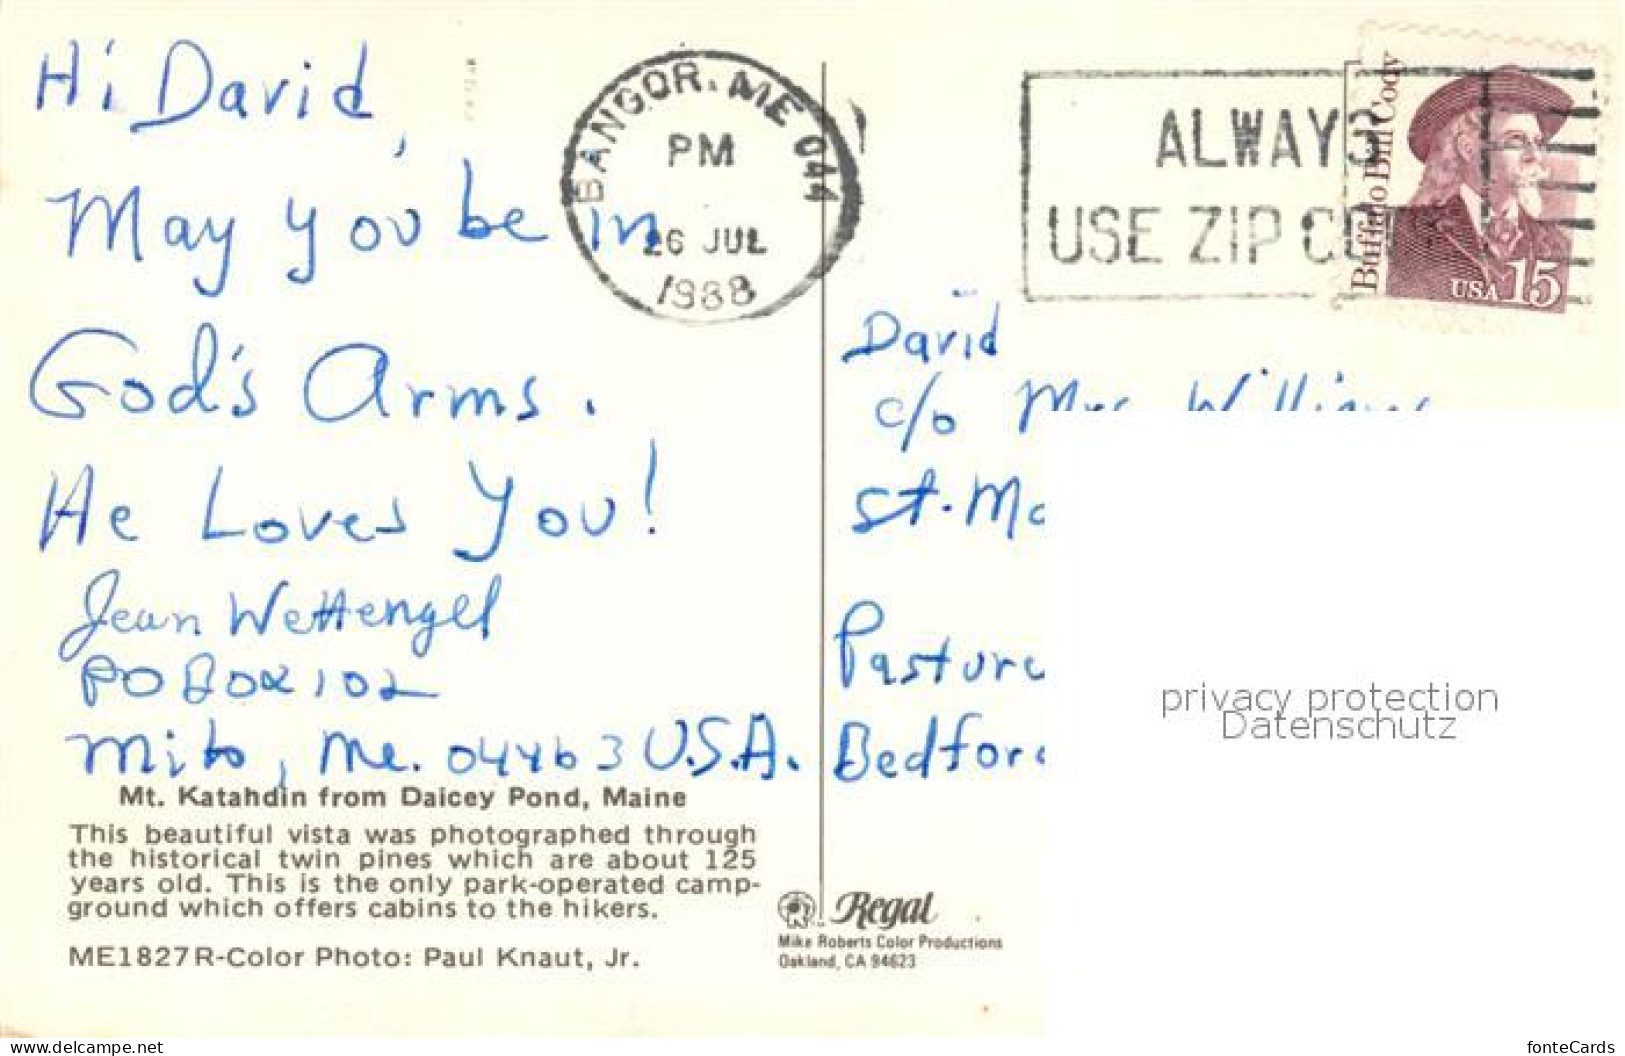 Hi David,
May you be in
God's Arms.
He Loves You!
Jean Wettengel
PO Box 102
Milo, Me. 04463 U.S.A.
Mt. Katahdin from Daicey Pond, Maine
This beautiful vista was photographed through
the historical twin pines which are about 125
years old. This is the only park-operated camp-
ground which offers cabins to the hikers.
ME1827R-Color Photo: Paul Knaut, Jr.
BANGOR, ME 044
PM
26 JUL
1988
ALWAYS
USE ZIP CODE
Buffalo Bill Cody
USA 15
David
c/o Mrs Williams
St. Ma
Pasture
Bedford
privacy protection
Datenschutz
Regal
Mike Roberts Color Productions
Oakland, CA 94623
www.delcampe.net
fonteCards